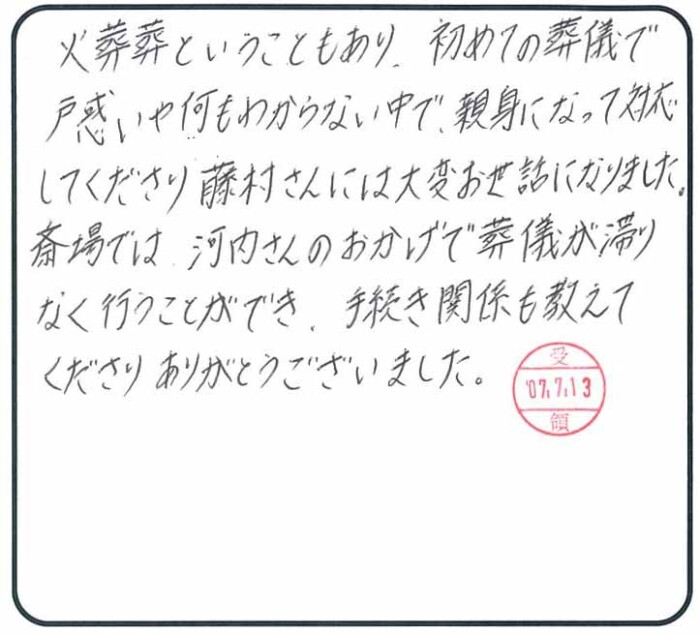 火葬葬ということもあり、初めての葬儀で
戸惑いや何もわからない中で、親身になって対応
してくださり藤村さんには大変お世話になりました。
斎場では、河内さんのおかげで葬儀が滞り
なく行うことができ、手続き関係も教えて
くださりありがとうございました。
受
'07.7.13
領